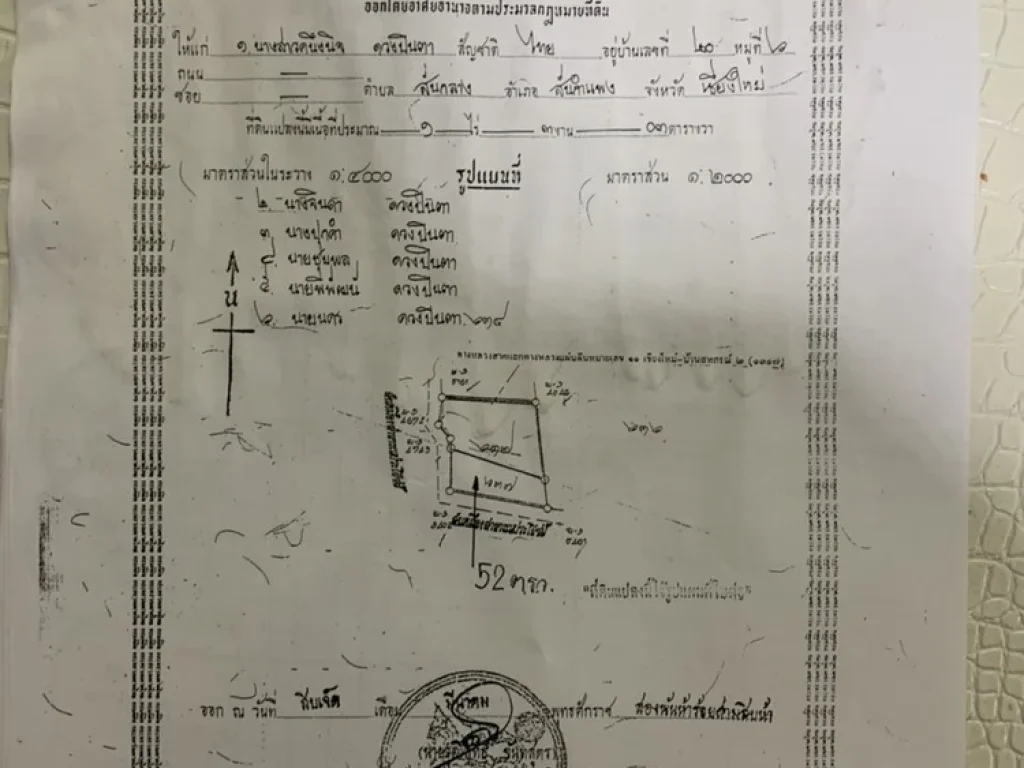 ออกโดยอาศัยอำนาจตามประมวลกฎหมายที่ดิน
ให้แก่ ๑ นางสาวคนึงนิจ ดวงปินตา สัญชาติ ไทย อยู่บ้านเลขที่ ๒๐ หมู่ที่ ๖
ถนน — ตำบล สันกลาง อำเภอ สันกำแพง จังหวัด เชียงใหม่
ซอย —
ที่ดินแปลงนี้มีเนื้อที่ประมาณ ๑ ไร่ ๓ งาน ๐๓ ตารางวา
มาตราส่วนในระวาง ๑:๔๐๐๐ รูปแผนที่ มาตราส่วน ๑:๒๐๐๐
๒. นางจินดา ดวงปินตา
๓. ดวงปินตา
๔. นายชุมพล ดวงปินตา
๕. นายพิพัฒน์ ดวงปินตา
๖. นายนคร ดวงปินตา ๒๓๔
น
ทางหลวงสายเอกทางหลวงแผ่นดินหมายเลข ๑๑ เชียงใหม่-
๒๓๖
๒๓๗
52 ตรว.
"ที่ดินแปลงนี้ใช้รูปแผนที่ใบต่อ"
ออก ณ วันที่ สิบเจ็ด เดือน มีนาคม พุทธศักราช สองพันห้าร้อยสามสิบห้า